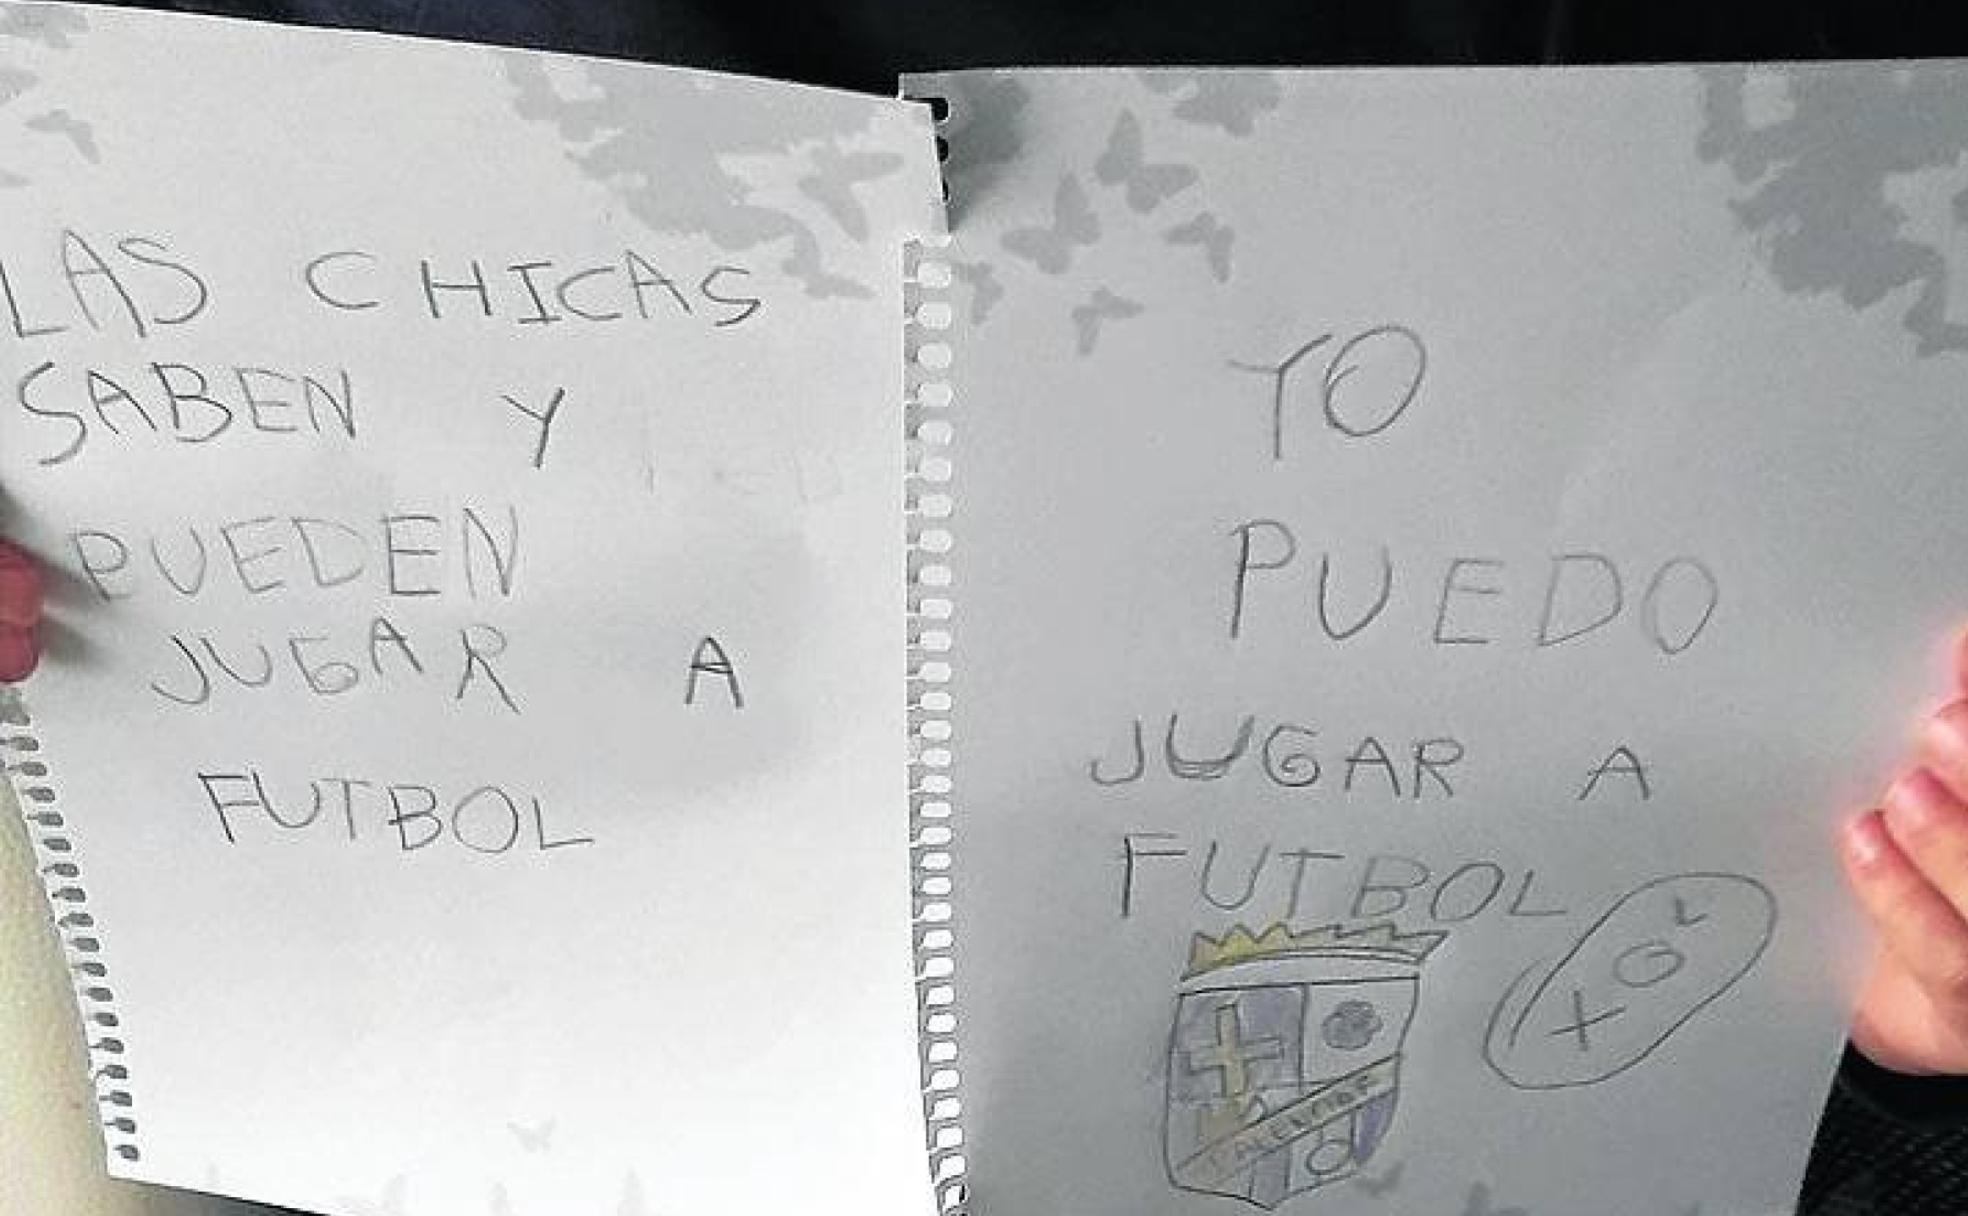 LAS CHICAS
SABEN Y
PUEDEN
JUGAR A
FUTBOL
YO
PUEDO
JUGAR A
FUTBOL